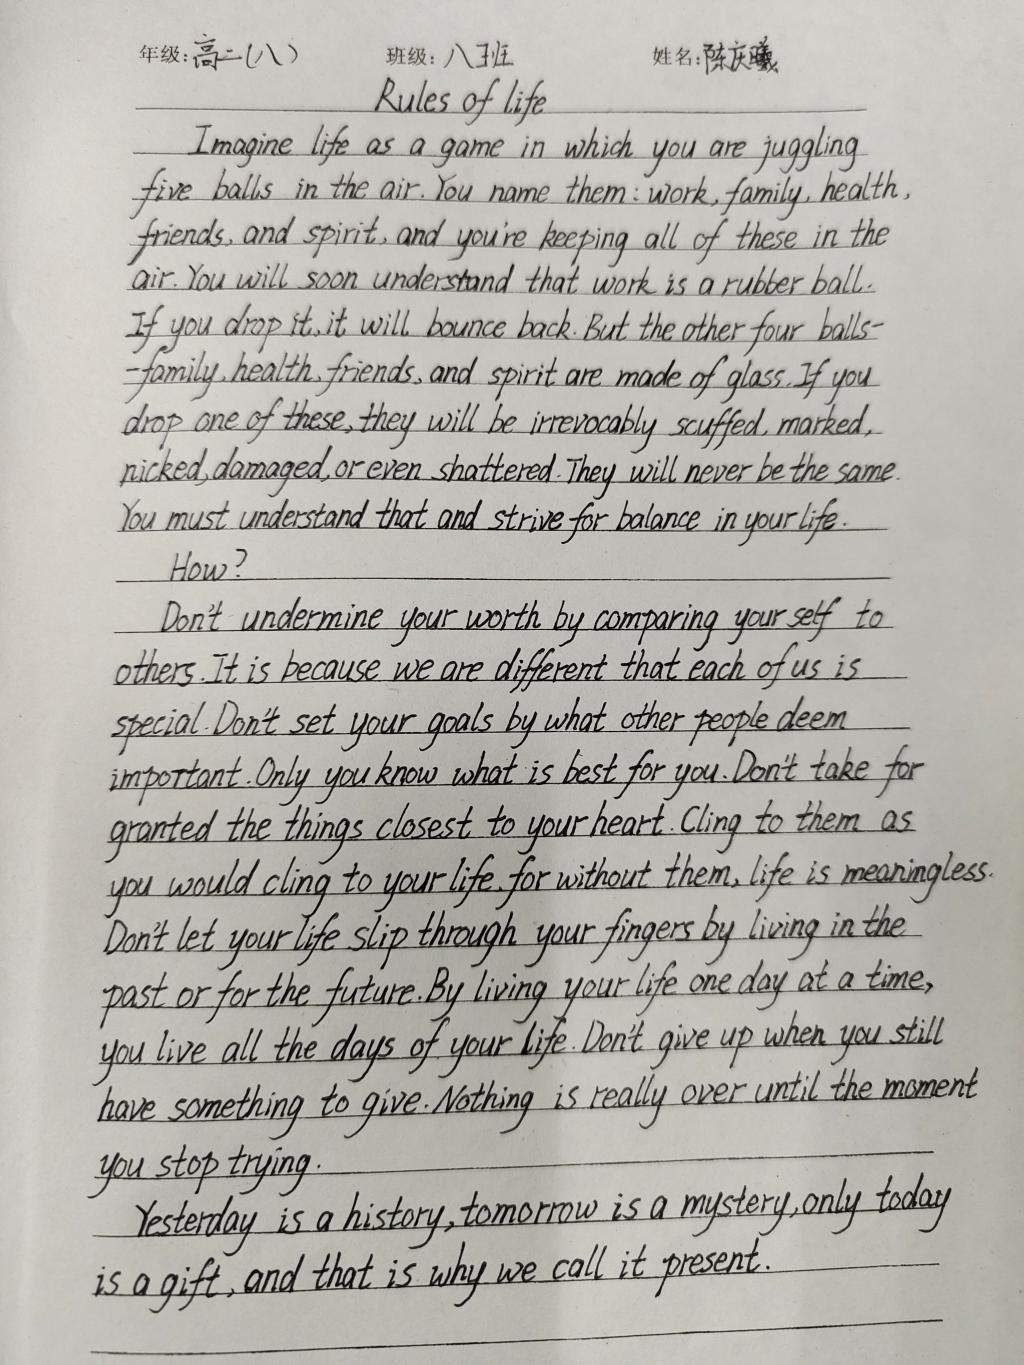 年级:高二(八) 班级:八班 姓名:陈庆曦
Rules of life
Imagine life as a game in which you are juggling
five balls in the air. You name them: work, family, health,
friends, and spirit, and you're keeping all of these in the
air. You will soon understand that work is a rubber ball.
If you drop it, it will bounce back. But the other four balls-
-family, health, friends, and spirit are made of glass. If you
drop one of these, they will be irrevocably scuffed, marked,
nicked, damaged, or even shattered. They will never be the same.
You must understand that and strive for balance in your life.
How?
Don't undermine your worth by comparing yourself to
others. It is because we are different that each of us is
special. Don't set your goals by what other people deem
important. Only you know what is best for you. Don't take for
granted the things closest to your heart. Cling to them as
you would cling to your life, for without them, life is meaningless.
Don't let your life slip through your fingers by living in the
past or for the future. By living your life one day at a time,
you live all the days of your life. Don't give up when you still
have something to give. Nothing is really over until the moment
you stop trying.
Yesterday is a history, tomorrow is a mystery, only today
is a gift, and that is why we call it present.